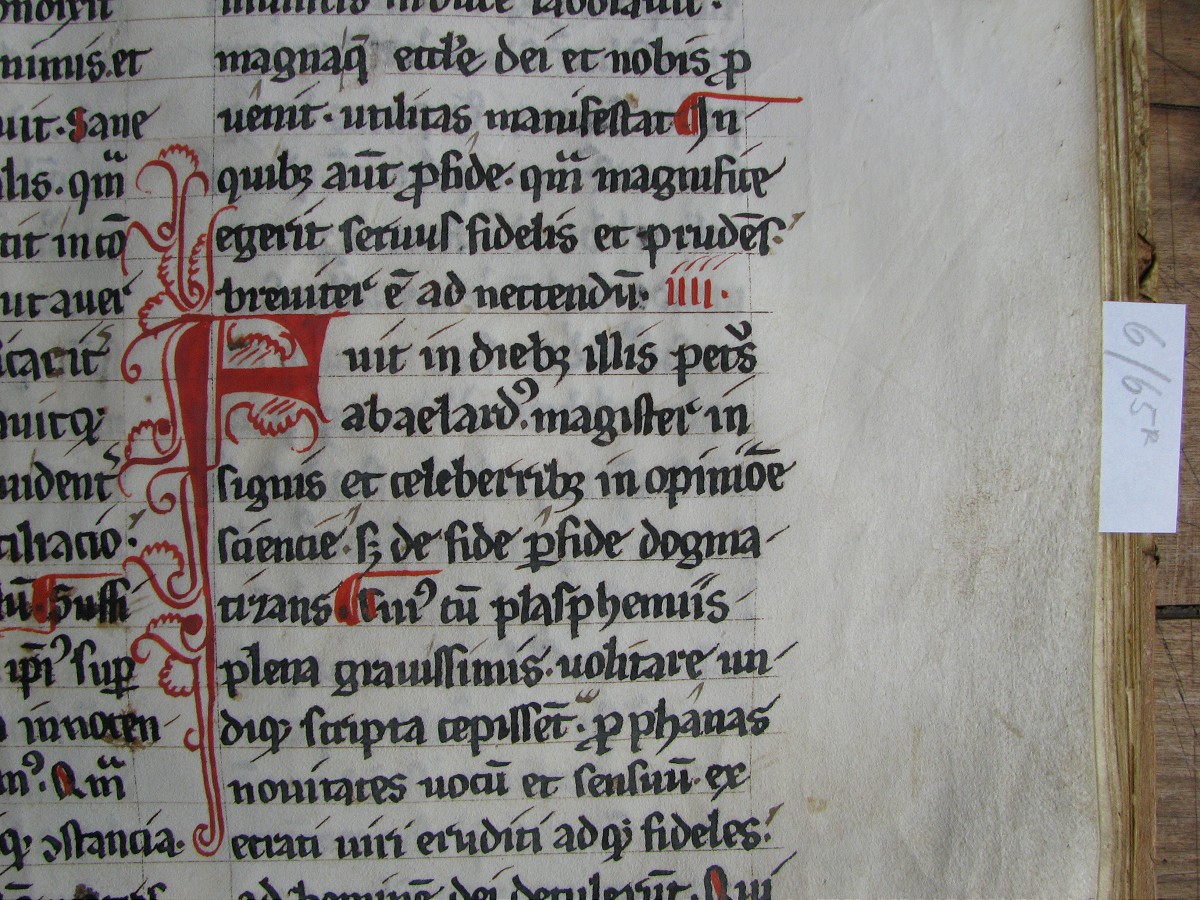 nimis.et
uit. Sane
lis. qm̄
tit in co
ut auer
itacit
nuitq;
uident
ciliacio.
Suffi
ip̄i᾽ sup
innocen
Qm̄
q; ꝯstancia.
magnaq̄ eccl̄e dei et nobis ꝓ
uenit. utilitas manifestat In
quibꝫ aūt ꝓ fide. qm̄ magnifice
egerit seruus fidelis et prudēs.
breuiter ē ad nectendū. IIII.
Fuit in diebꝫ illis petr᾽s
abaelard᾽. magister in
signis et celeberribꝫ in opiniōe
sciencie. sꝫ de fide ꝑfide dogma
tizans. Cui᾽ cū plasphemiis
plena grauissimis. uolitare un
diq; scripta cepissēt. ꝓphanas
nouitates uocū et sensuū. ex
etrati uiri eruditi adq; fideles.
ad hominē dei detulerūt. Qui
6/65r